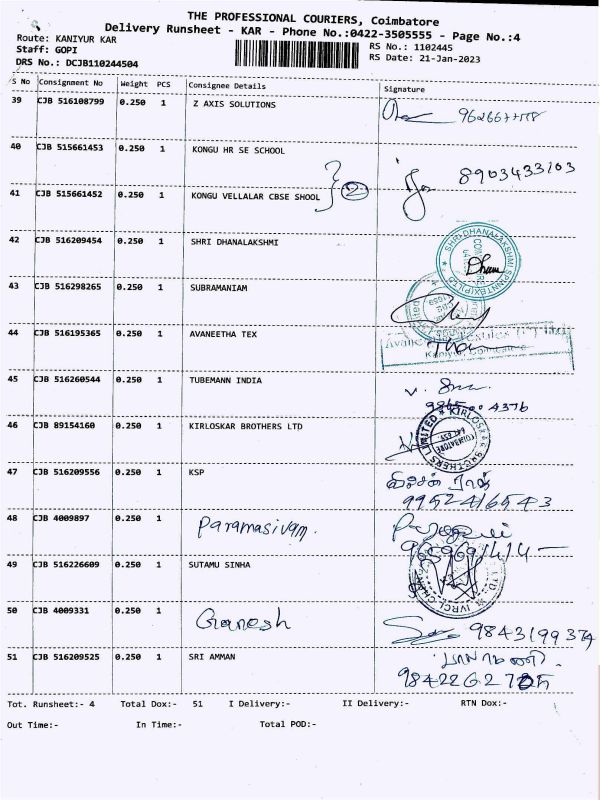 THE PROFESSIONAL COURIERS, Coimbatore
Delivery Runsheet - KAR - Phone No.:0422-3505555 - Page No.:4
Route: KANIYUR KAR
Staff: GOPI
DRS No.: DCJB110244504
RS No.: 1102445
RS Date: 21-Jan-2023
S No Consignment No Weight PCS Consignee Details Signature
39 CJB 516108799 0.250 1 Z AXIS SOLUTIONS
40 CJB 515661453 0.250 1 KONGU HR SE SCHOOL
41 CJB 515661452 0.250 1 KONGU VELLALAR CBSE SHOOL 2 8903433103
42 CJB 516209454 0.250 1 SHRI DHANALAKSHMI
43 CJB 516298265 0.250 1 SUBRAMANIAM
44 CJB 516195365 0.250 1 AVANEETHA TEX
45 CJB 516260544 0.250 1 TUBEMANN INDIA
46 CJB 89154160 0.250 1 KIRLOSKAR BROTHERS LTD
47 CJB 516209556 0.250 1 KSP 9952416543
48 CJB 4009897 0.250 1 Paramasivam.
49 CJB 516226609 0.250 1 SUTAMU SINHA
50 CJB 4009331 0.250 1 Ganesh 9843199374
51 CJB 516209525 0.250 1 SRI AMMAN
Tot. Runsheet:- 4 Total Dox:- 51 I Delivery:- II Delivery:- RTN Dox:-
Out Time:- In Time:- Total POD:-